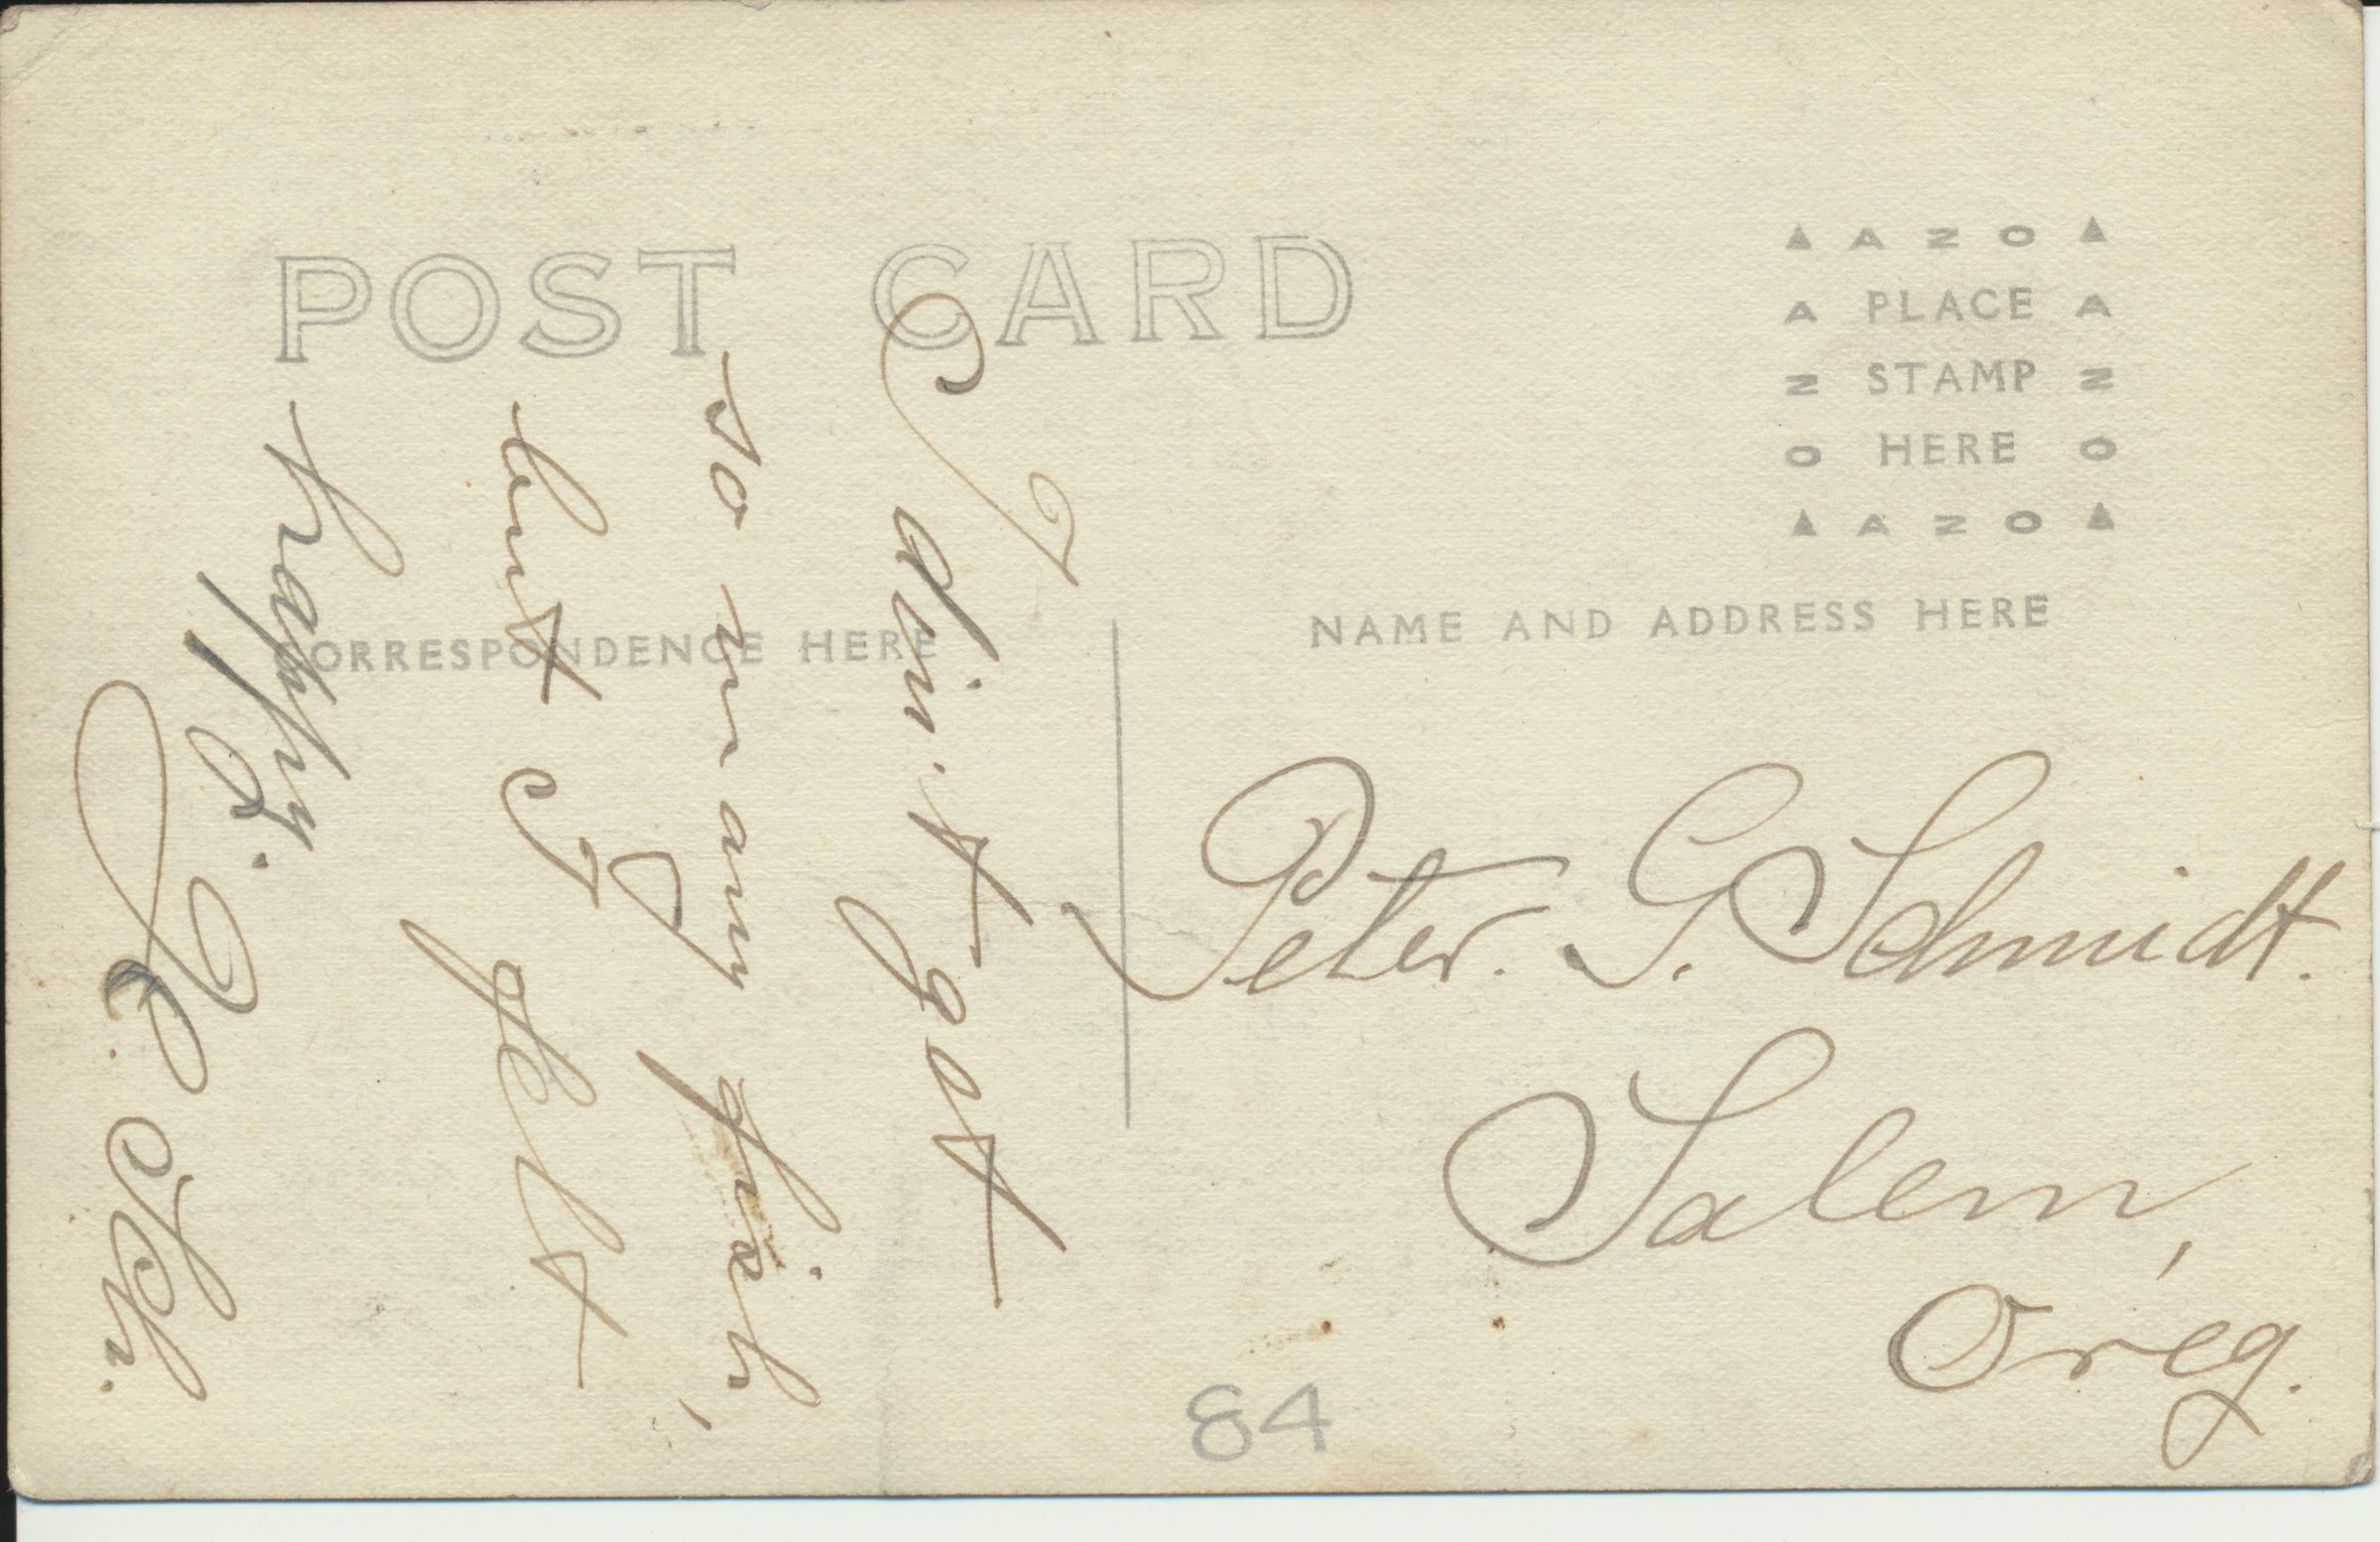 POST CARD
▲ A Z O ▲
A PLACE A
Z STAMP Z
O HERE O
▲ A Z O ▲
CORRESPONDENCE HERE
NAME AND ADDRESS HERE
I din't got
so many fish,
but I felt
happy.
Sch.
Peter. G. Schmidt.
Salem,
Oreg.
84